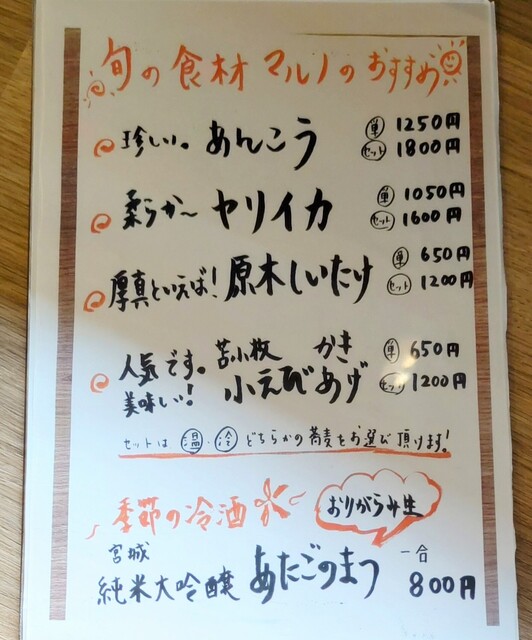 旬の食材 マルノのおすすめ
珍しい。 あんこう 単 1250円
セット 1800円
柔らか〜 ヤリイカ 単 1050円
セット 1600円
厚真といえば! 原木しいたけ 単 650円
セット 1200円
人気です。 苫小牧 かき 単 650円
美味しい! 小えびあげ セット 1200円
セットは 温・冷 どちらかの蕎麦をお選び頂けます!
季節の冷酒 おりがらみ生
宮城
純米大吟醸 あたごのまつ 一合 800円